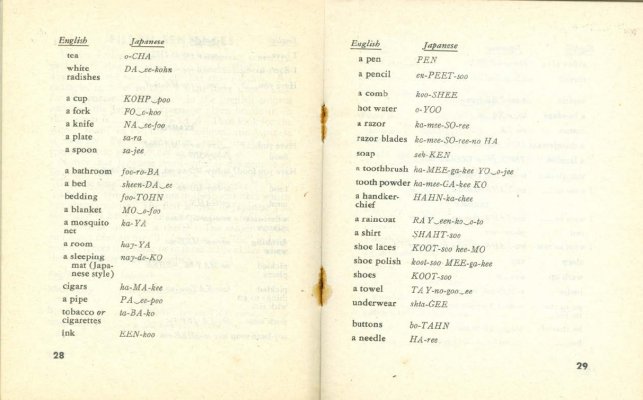 English Japanese
tea o-CHA
white DA_ee-kohn
radishes
a cup KOHP_poo
a fork FO_o-koo
a knife NA_ee-foo
a plate sa-ra
a spoon sa-jee
a bathroom foo-ro-BA
a bed sheen-DA_ee
bedding foo-TOHN
a blanket MO_o-foo
a mosquito ka-YA
net
a room hay-YA
a sleeping nay-do-KO
mat (Japa-
nese style)
cigars ha-MA-kee
a pipe PA_ee-poo
tobacco or ta-BA-ko
cigarettes
ink EEN-koo
28
English Japanese
a pen PEN
a pencil en-PEET-soo
a comb koo-SHEE
hot water o-YOO
a razor ka-mee-SO-ree
razor blades ka-mee-SO-ree-no HA
soap sek-KEN
a toothbrush ha-MEE-ga-kee YO_o-jee
tooth powder ha-mee-GA-kee KO
a handker- HAHN-ka-chee
chief
a raincoat RAY_een-ko_o-to
a shirt SHAHT-soo
shoe laces KOOT-soo kee-MO
shoe polish koot-soo MEE-ga-kee
shoes KOOT-soo
a towel TAY-no-goo_ee
underwear shta-GEE
buttons bo-TAHN
a needle HA-ree
29